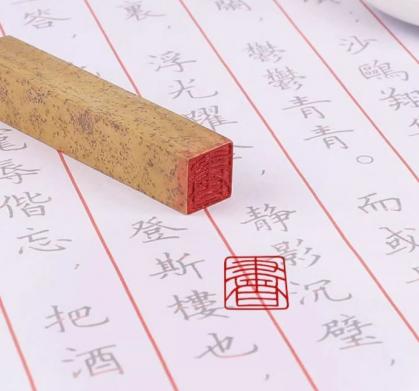 沙鷗翔
蘭鬱鬱青青。而或
裏浮光躍靜影沉璧，
答登斯樓也，
辱偕忘，把酒
書